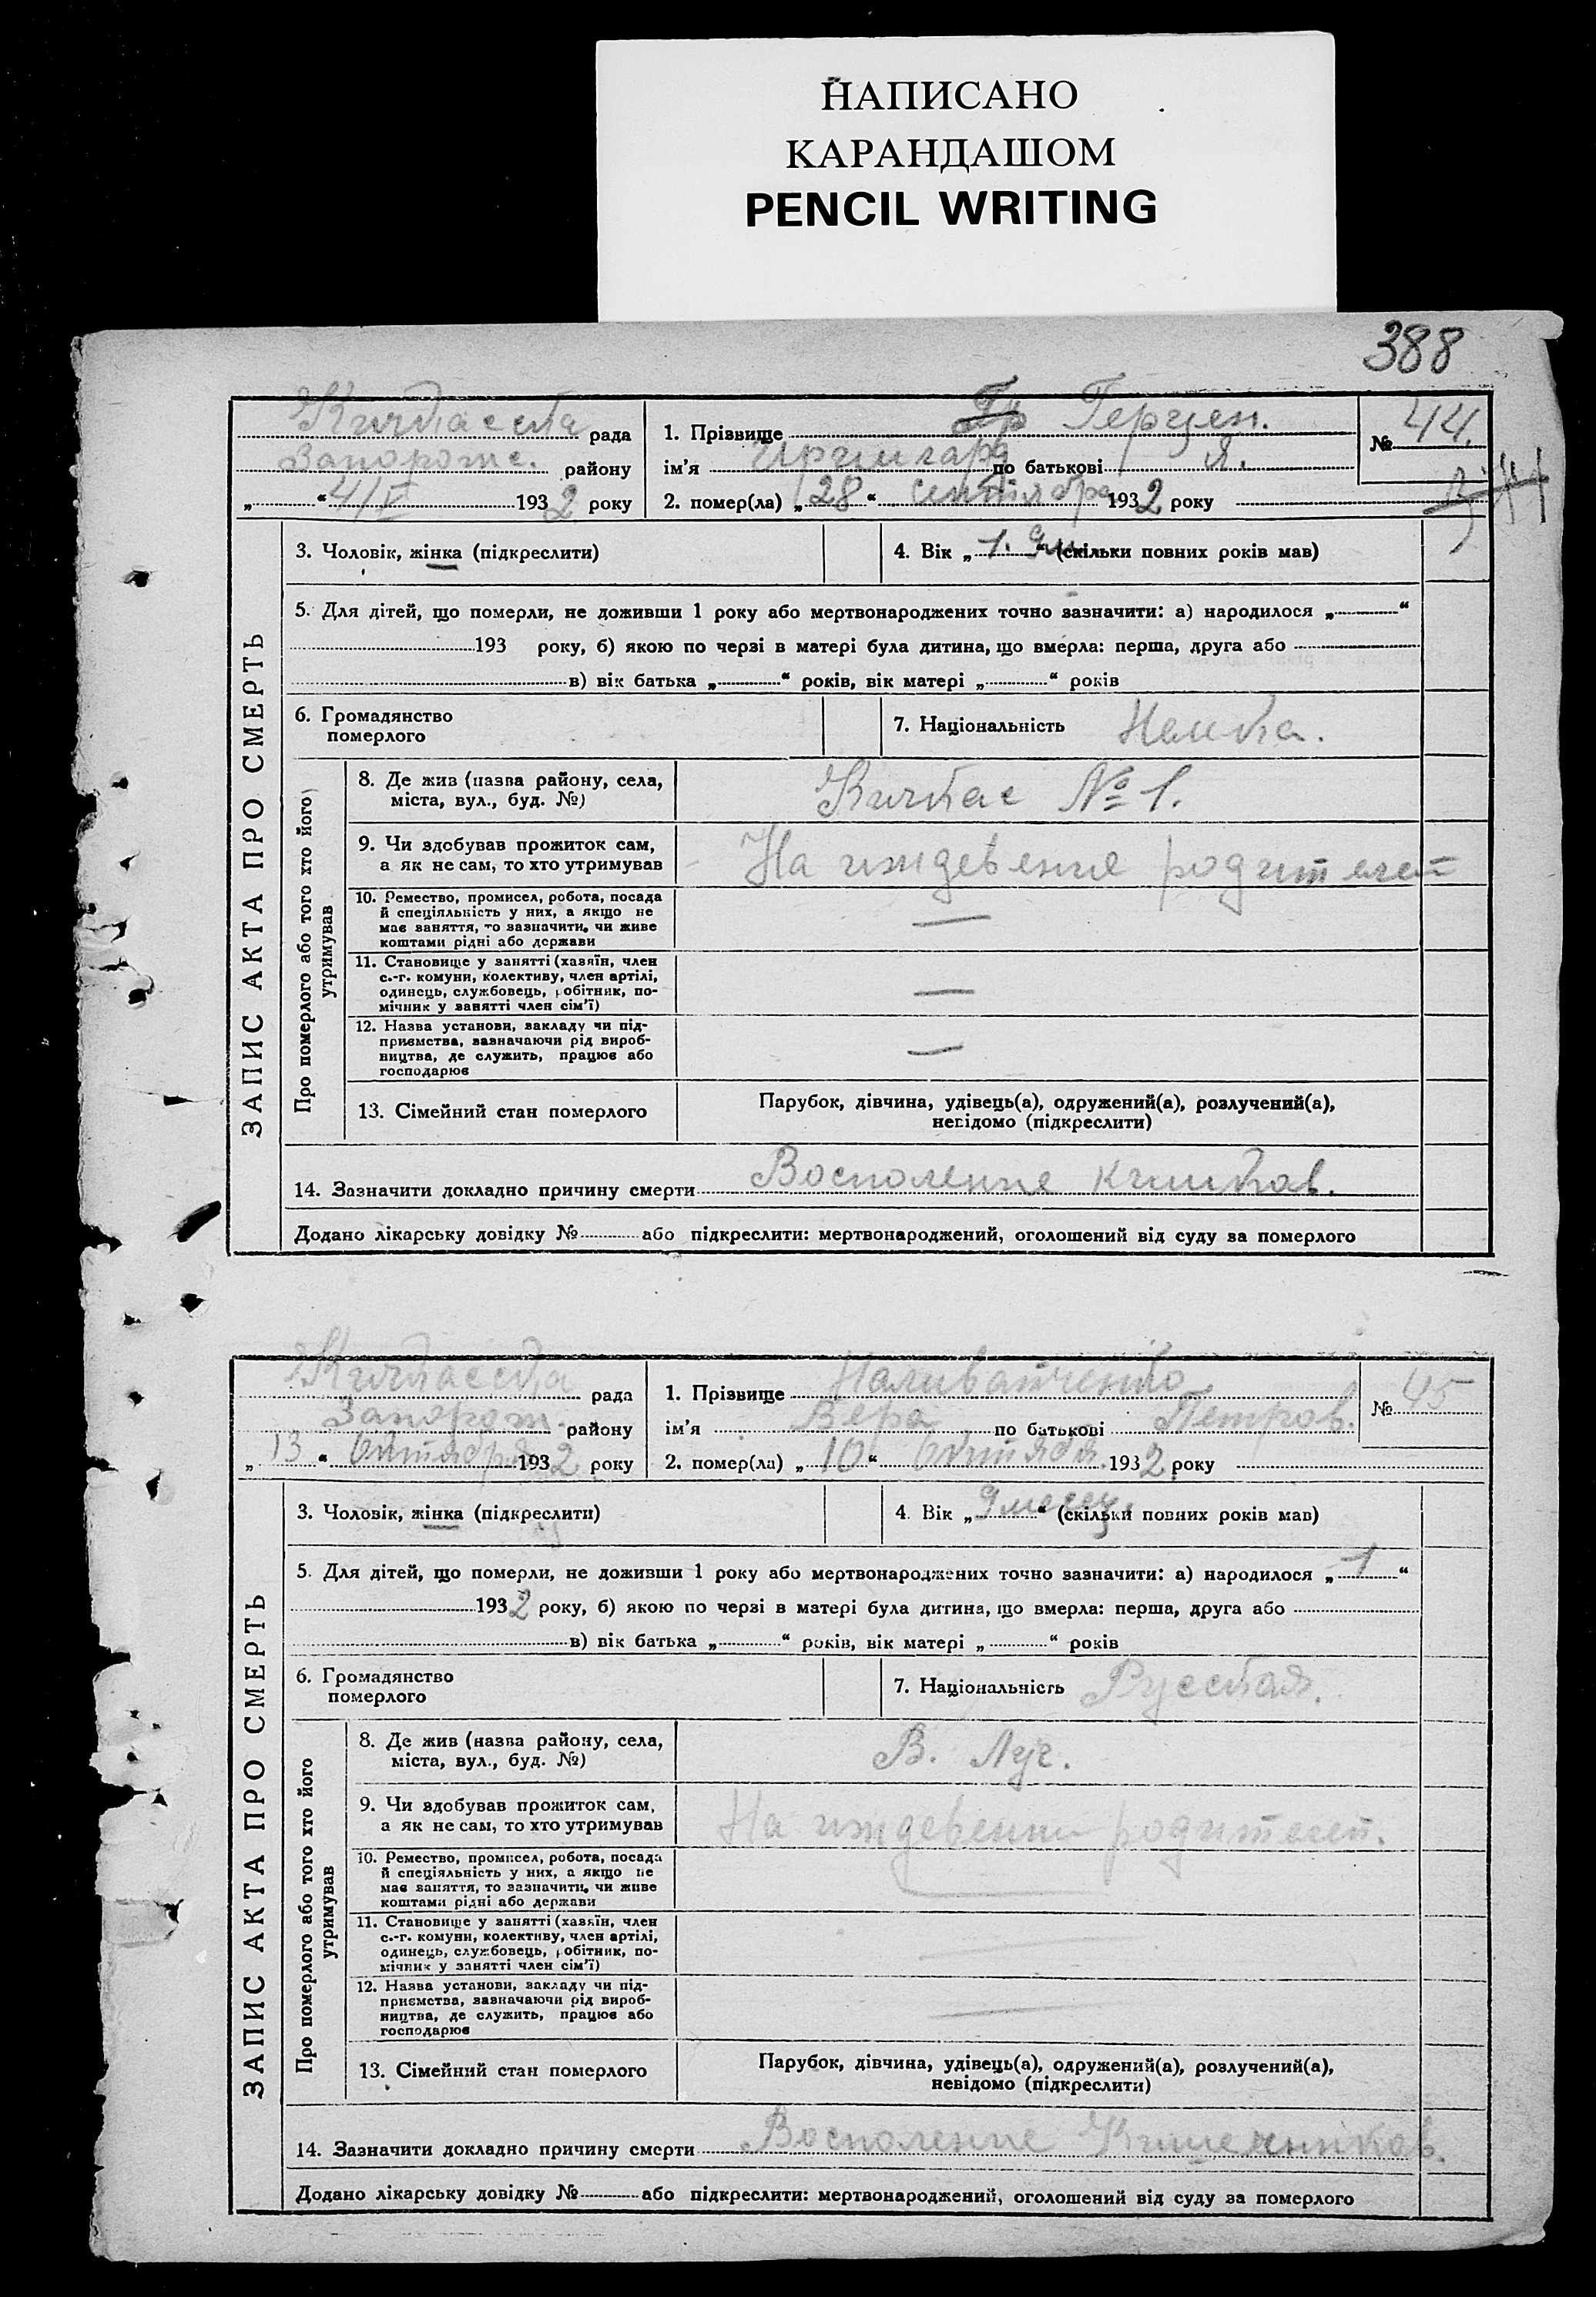 НАПИСАНО
КАРАНДАШОМ
PENCIL WRITING
388
Кичкасская рада
Запорож. району
„ “ 4/X 1932 року
1. Прізвище Гр Герцен.
ім'я Ирмгард по батькові Я.
2. помер(ла) „28“ сентября 1932 року
№ 44.
3. Чоловік, жінка (підкреслити)
4. Вік „1. “ (скільки повних років мав)
5. Для дітей, що померли, не доживши 1 року або мертвонароджених точно зазначити: а) народилося „ “
193 року, б) якою по черзі в матері була дитина, що вмерла: перша, друга або
в) вік батька „ “ років, вік матері „ “ років
6. Громадянство
померлого
7. Національність Немка.
ЗАПИС АКТА ПРО СМЕРТЬ
Про померлого або того хто його)
утримував
8. Де жив (назва району, села,
міста, вул., буд. №)
Кичкас № 1.
9. Чи здобував прожиток сам,
а як не сам, то хто утримував
На иждевение родителей
10. Ремество, промисел, робота, посада
й спеціяльність у них, а якщо не
має заняття, то зазначити, чи живе
коштами рідні або держави
—
11. Становище у занятті (хазяїн, член
с.-г. комуни, колективу, член артілі,
одинець, службовець, робітник, по-
мічник у занятті член сім'ї)
—
12. Назва установи, закладу чи під-
приємства, зазначаючи рід вироб-
ництва, де служить, працює або
господарює
—
13. Сімейний стан померлого
Парубок, дівчина, удівець(а), одружений(а), розлучений(а),
невідомо (підкреслити)
14. Зазначити докладно причину смерти Восполение кишков.
Додано лікарську довідку № або підкреслити: мертвонароджений, оголошений від суду за померлого
Кичкасска рада
Запорож. району
„13“ Октября 1932 року
1. Прізвище Наливайченко
ім'я Вера по батькові Петров.
2. помер(ла) „10“ Октября. 1932 року
№ 45
3. Чоловік, жінка (підкреслити)
4. Вік „9 месец.“ (скільки повних років мав)
5. Для дітей, що померли, не доживши 1 року або мертвонароджених точно зазначити: а) народилося „1“
1932 року, б) якою по черзі в матері була дитина, що вмерла: перша, друга або
в) вік батька „ “ років, вік матері „ “ років
6. Громадянство
померлого
7. Національність Русская.
ЗАПИС АКТА ПРО СМЕРТЬ
Про померлого або того хто його
утримував
8. Де жив (назва району, села,
міста, вул., буд. №)
В. Луг.
9. Чи здобував прожиток сам,
а як не сам, то хто утримував
На иждевении родителей.
10. Ремество, промисел, робота, посада
й спеціяльність у них, а якщо не
має заняття, то зазначити, чи живе
коштами рідні або держави
—
11. Становище у занятті (хазяїн, член
с.-г. комуни, колективу, член артілі,
одинець, службовець, робітник, по-
мічник у занятті член сім'ї)
—
12. Назва установи, закладу чи під-
приємства, зазначаючи рід вироб-
ництва, де служить, працює або
господарює
—
13. Сімейний стан померлого
Парубок, дівчина, удівець(а), одружений(а), розлучений(а),
невідомо (підкреслити)
14. Зазначити докладно причину смерти Восполение Кишечников.
Додано лікарську довідку № або підкреслити: мертвонароджений, оголошений від суду за померлого